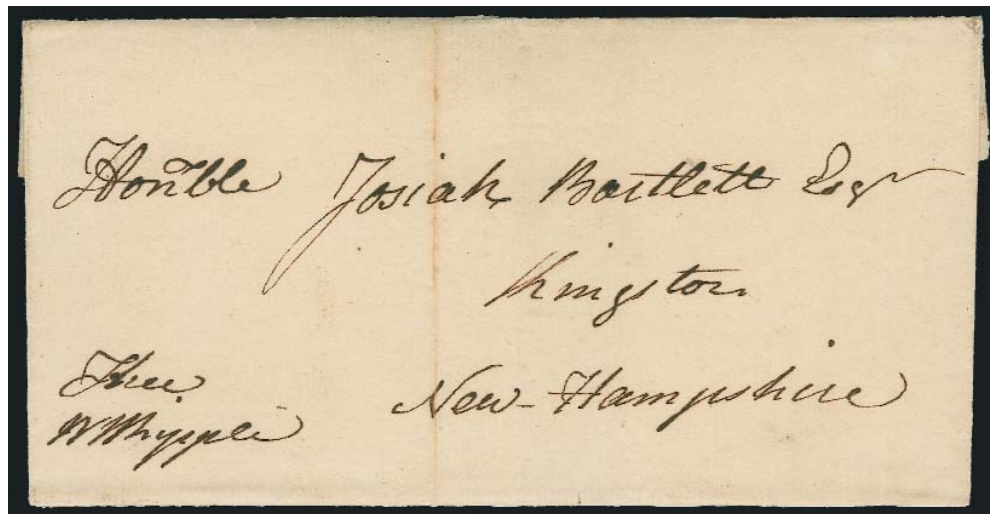 Honble Josiah Bartlett Esqr
Kingston
New-Hampshire
Free
WWhipple